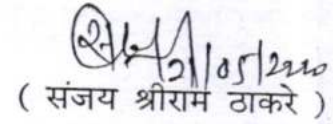 21/05/2020
( संजय श्रीराम ठाकरे )